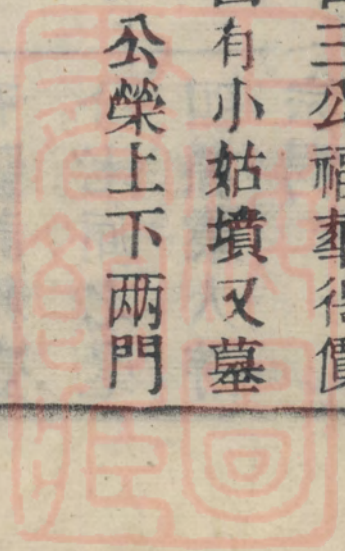 三公福羣得價
有小姑墳又墓
公榮上下两門